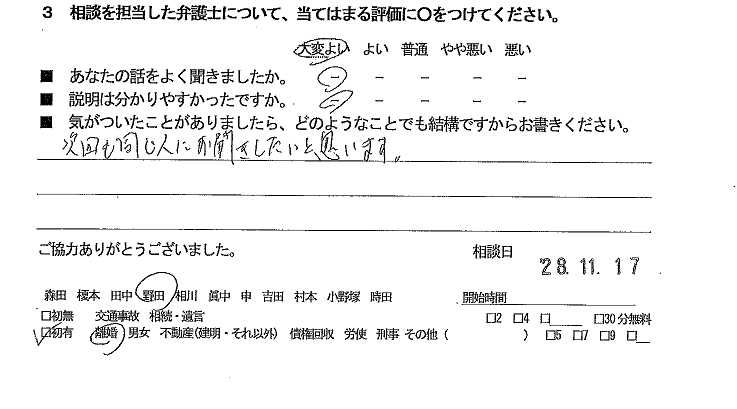 3 相談を担当した弁護士について、当てはまる評価に〇をつけてください。
大変よい よい 普通 やや悪い 悪い
■ あなたの話をよく聞きましたか。 － － － － －
■ 説明は分かりやすかったですか。 － － － － －
■ 気がついたことがありましたら、どのようなことでも結構ですからお書きください。
次回も同じ人にお聞きしたいと思います。
ご協力ありがとうございました。 相談日 '28.11.17
森田 榎本 田中 野田 相川 眞中 申 吉田 村本 小野塚 時田 開始時間
□初無 交通事故 相続・遺言 □2 □4 □ □30分無料
□初有 離婚 男女 不動産(建明・それ以外) 債権回収 労使 刑事 その他 ( ) □5 □7 □9 □